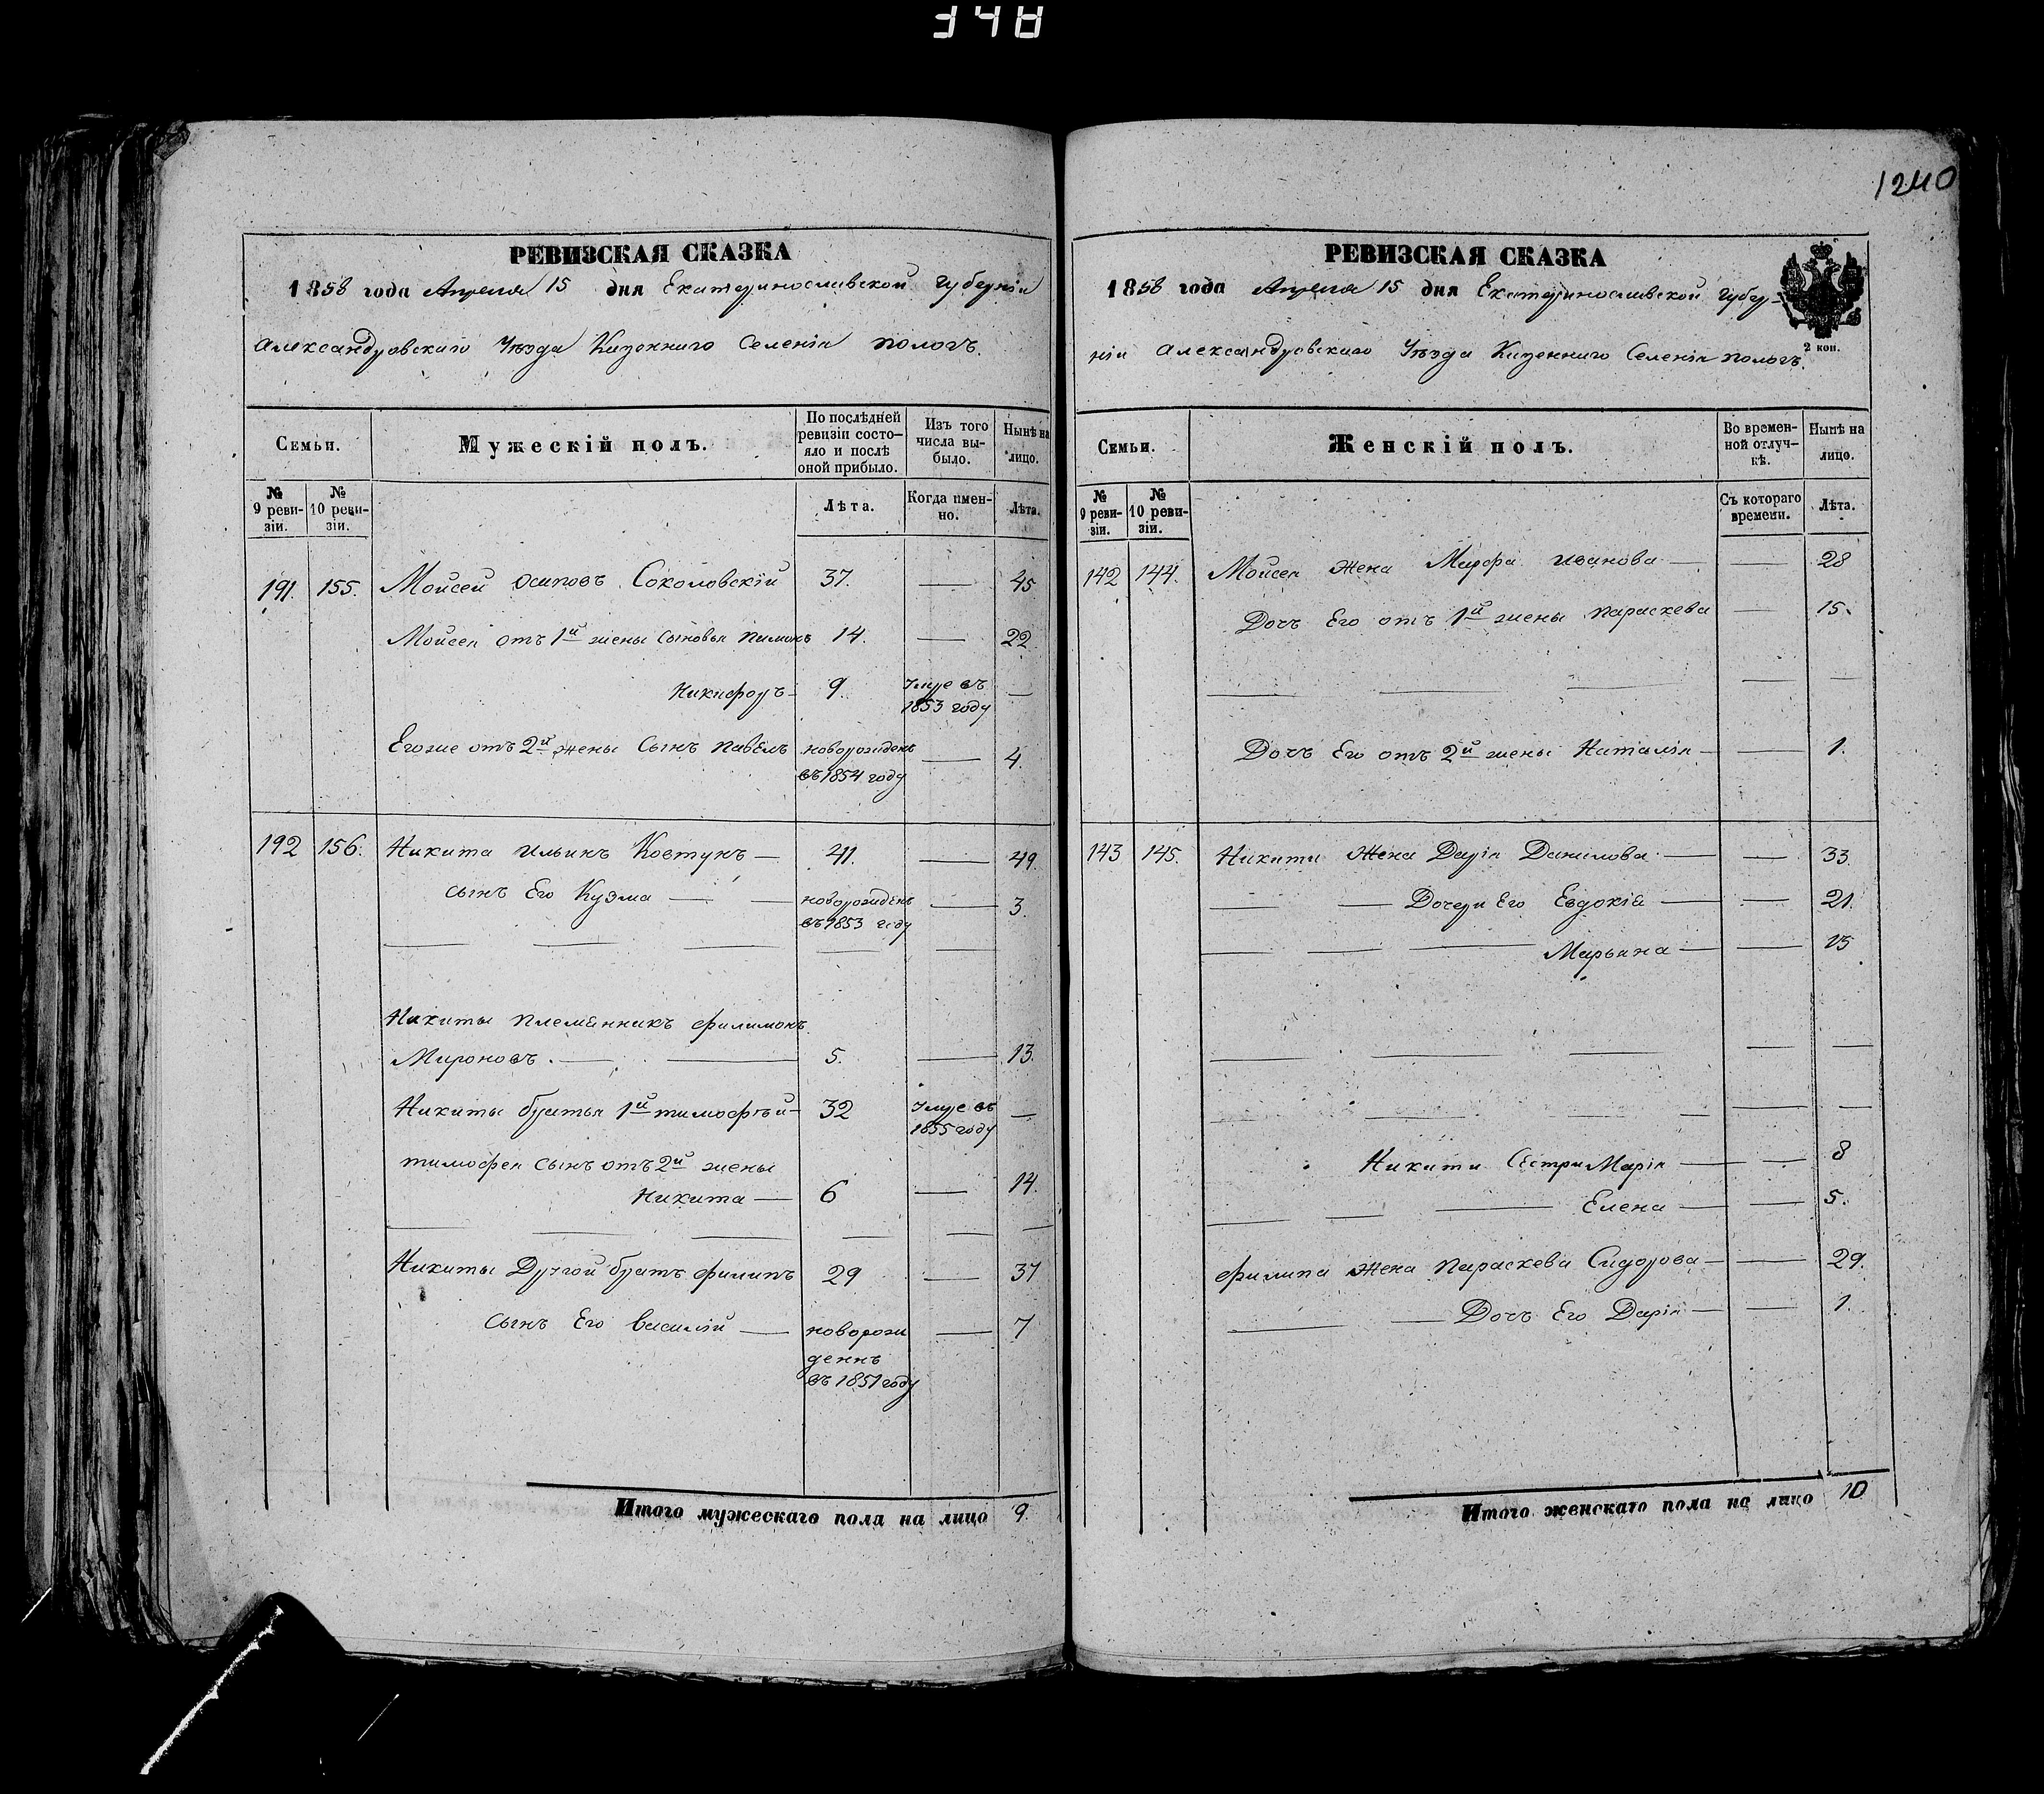 348
1240
РЕВИЗСКАЯ СКАЗКА
1858 года Апреля 15 дня Екатеринославской Губерніи
Александровскаго Уѣзда Казеннаго Селенія пологъ.
Семьи.
Мужескій полъ.
По послѣдней ревизіи состо-
яло и послѣ оной прибыло.
Изъ того числа вы-
было.
Нынѣ на лицо.
№ 9 реви-
зіи.
№ 10 реви-
зіи.
Лѣта.
Когда имен-
но.
Лѣта.
191. 155. Мойсей осиповъ Соколовскій 37. — 45
Мойсея отъ 1й жены сыновья пимонъ 14. — 22
Никифоръ — 9. Умре въ 1853 году —
Егоже отъ 2й жены Сынъ павелъ новорожденъ въ 1854 году — 4.
192 156. Никита ильинъ Ковтунъ — 41. — 49.
сынъ Его Кузма — — новорожденъ въ 1853 году — 3.
Никиты племянникъ филимонъ
Мироновъ. — — 5. — 13.
Никиты братья 1й тимофѣй — 32 Умре въ 1855 году —
тимофея сынъ отъ 2й жены
Никита — 6 — 14.
Никиты Другой братъ филипъ 29 — 37
Сынъ Его василій — новорож
денъ
въ 1851 году — 7
Итого мужескаго пола на лицо 9.
РЕВИЗСКАЯ СКАЗКА
1858 года Апреля 15 дня Екатеринославской Губер-
ніи Александровскаго Уѣзда Казеннаго Селенія пологъ.
2 коп.
Семьи.
Женскій полъ.
Во времен-
ной отлуч-
кѣ.
Нынѣ на лицо.
№ 9 реви-
зіи.
№ 10 реви-
зіи.
Съ котораго времени.
Лѣта.
142 144. Мойсея жена Марфа иванова — — 28
Дочъ Его отъ 1й жены параскева — 15.
Дочъ Его отъ 2й жены Наталія — — 1.
143 145. Никиты жена Дарія Данилова — — 33.
— — Дочери Его Евдокія — — 21.
— — — Марьяна — — 15
Никиты Сестри Марія — — 8
— — — Елена — — 5.
филипа жена параскева Сидорова — — 29.
— — Дочъ Его Дарія — — 1.
Итого женскаго пола на лицо 10